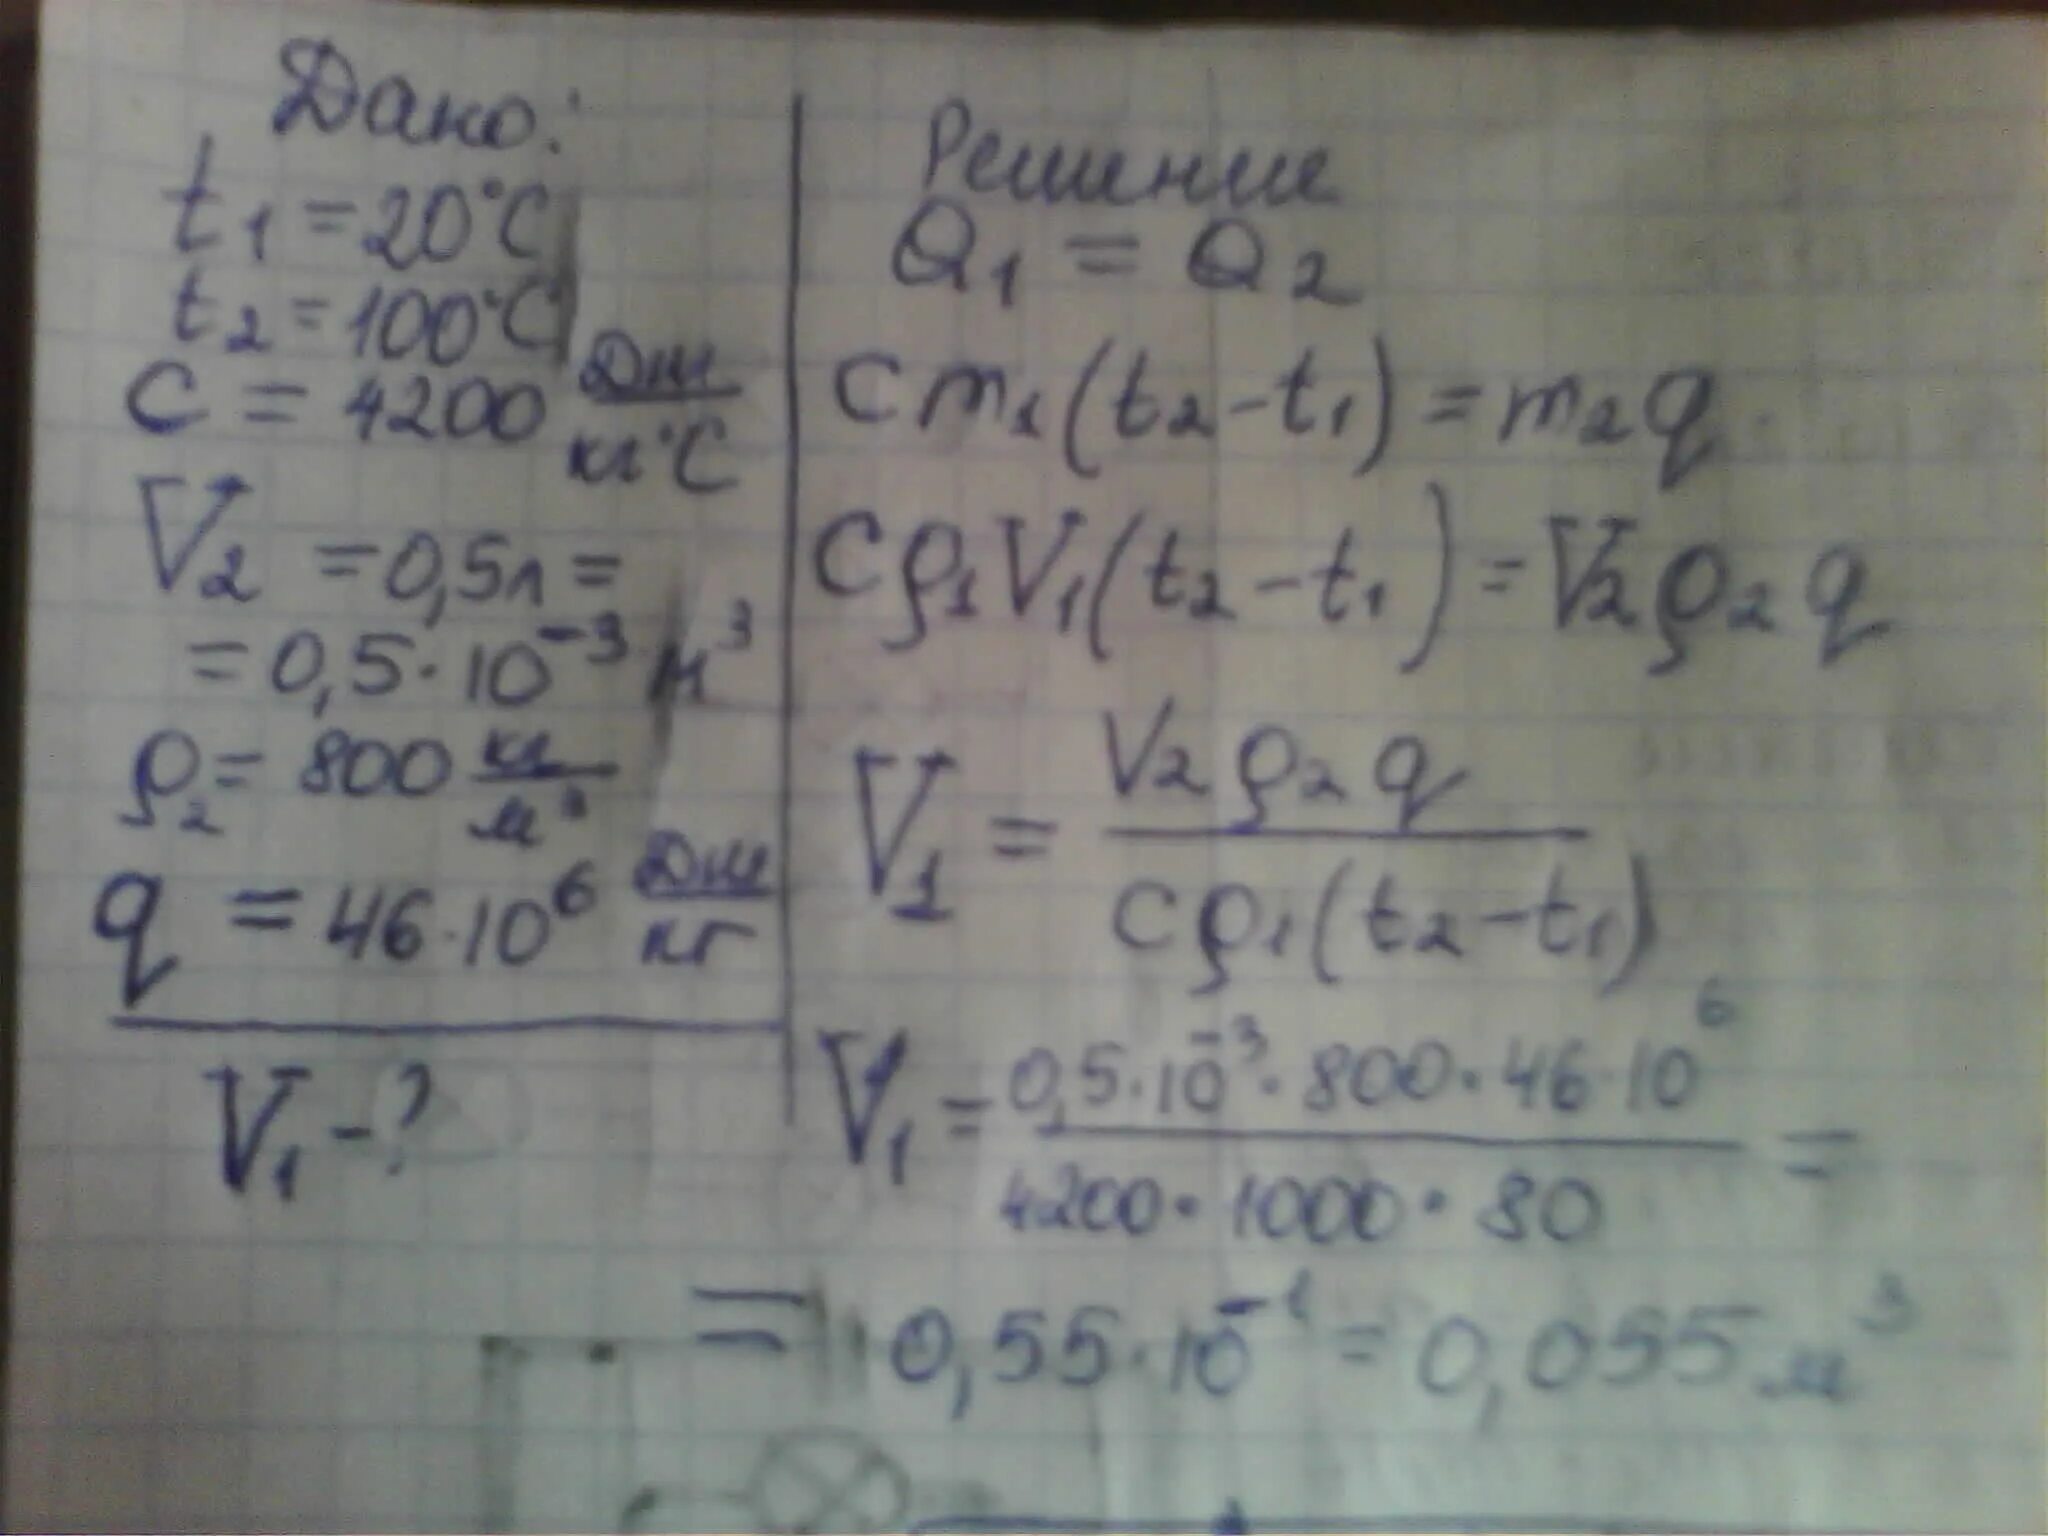 Дано:
t₁ = 20°C
t₂ = 100°C
C = 4200 Дж/кг°C
V₂ = 0,5л =
= 0,5·10⁻³ м³
ρ₂ = 800 кг/м³
q = 46·10⁶ Дж/кг
V₁ - ?
Решение
Q₁ = Q₂
Cm₁(t₂-t₁) = m₂q
Cρ₁V₁(t₂-t₁) = V₂ρ₂q
V₁ = V₂ρ₂q / Cρ₁(t₂-t₁)
V₁ = 0,5·10⁻³·800·46·10⁶ / 4200·1000·80 =
= 0,55·10⁻¹ = 0,055 м³